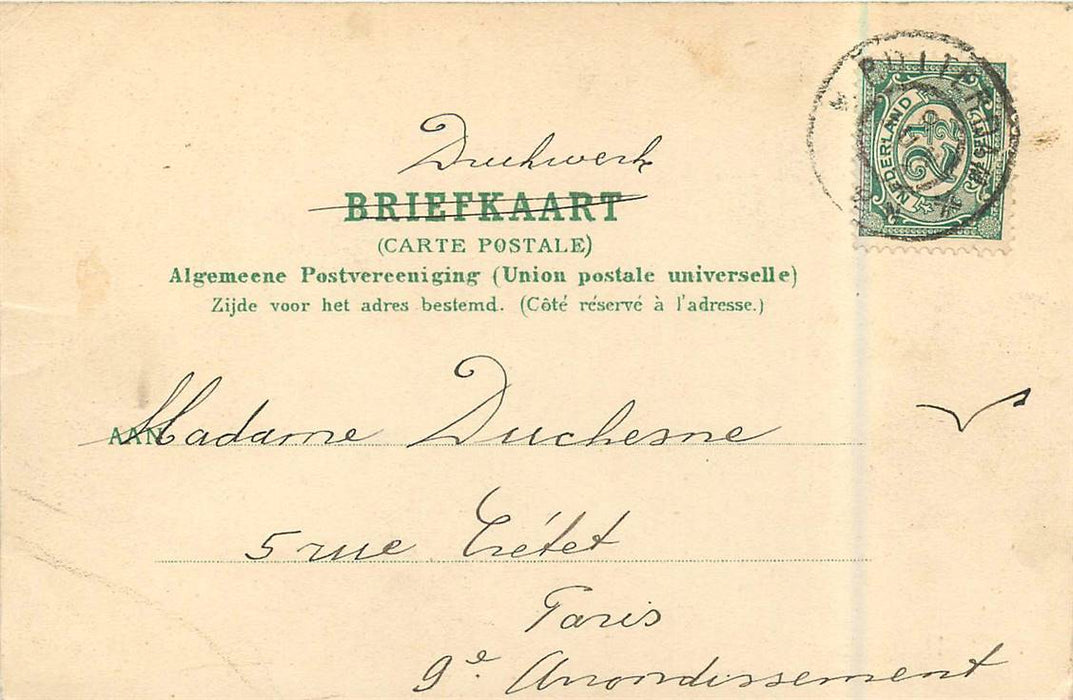 Drukwerk
BRIEFKAART
(CARTE POSTALE)
Algemeene Postvereeniging (Union postale universelle)
Zijde voor het adres bestemd. (Côté réservé à l'adresse.)
NEDERLAND
2½
AAN Madame Duchesne
5 rue Crétet
Paris
9e Arrondissement